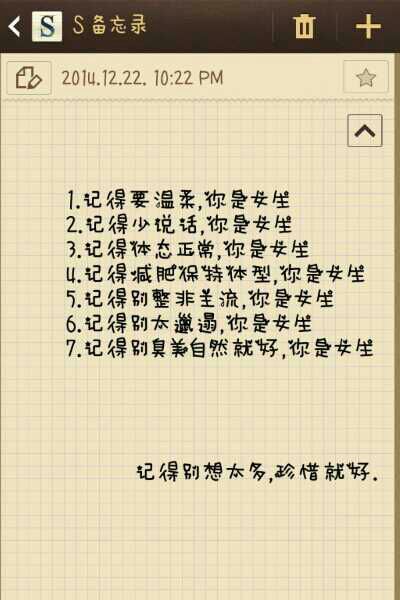 S S备忘录
2014.12.22. 10:22 PM
1.记得要温柔,你是女生
2.记得少说话,你是女生
3.记得体态正常,你是女生
4.记得减肥保持体型,你是女生
5.记得别整非主流,你是女生
6.记得别太邋遢,你是女生
7.记得别臭美自然就好,你是女生
记得别想太多,珍惜就好.